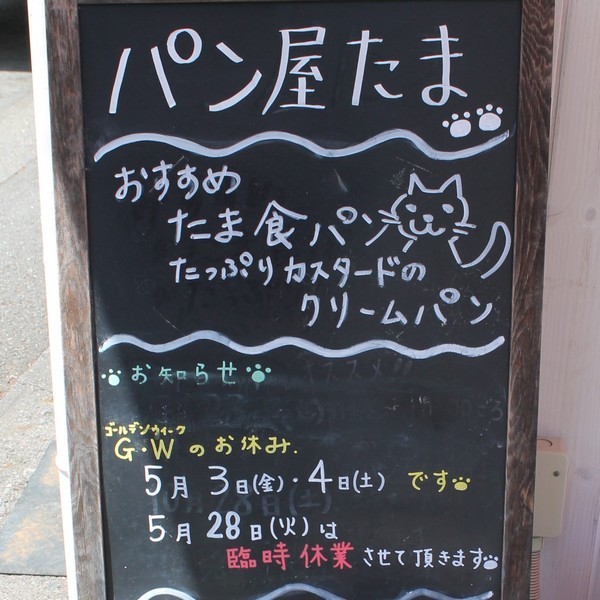 パン屋たま
おすすめ
たま食パン
たっぷりカスタードの
クリームパン
お知らせ
ゴールデンウィーク
G・Wのお休み.
5月3日(金)・4日(土)です
5月28日(火)は
臨時休業させて頂きます